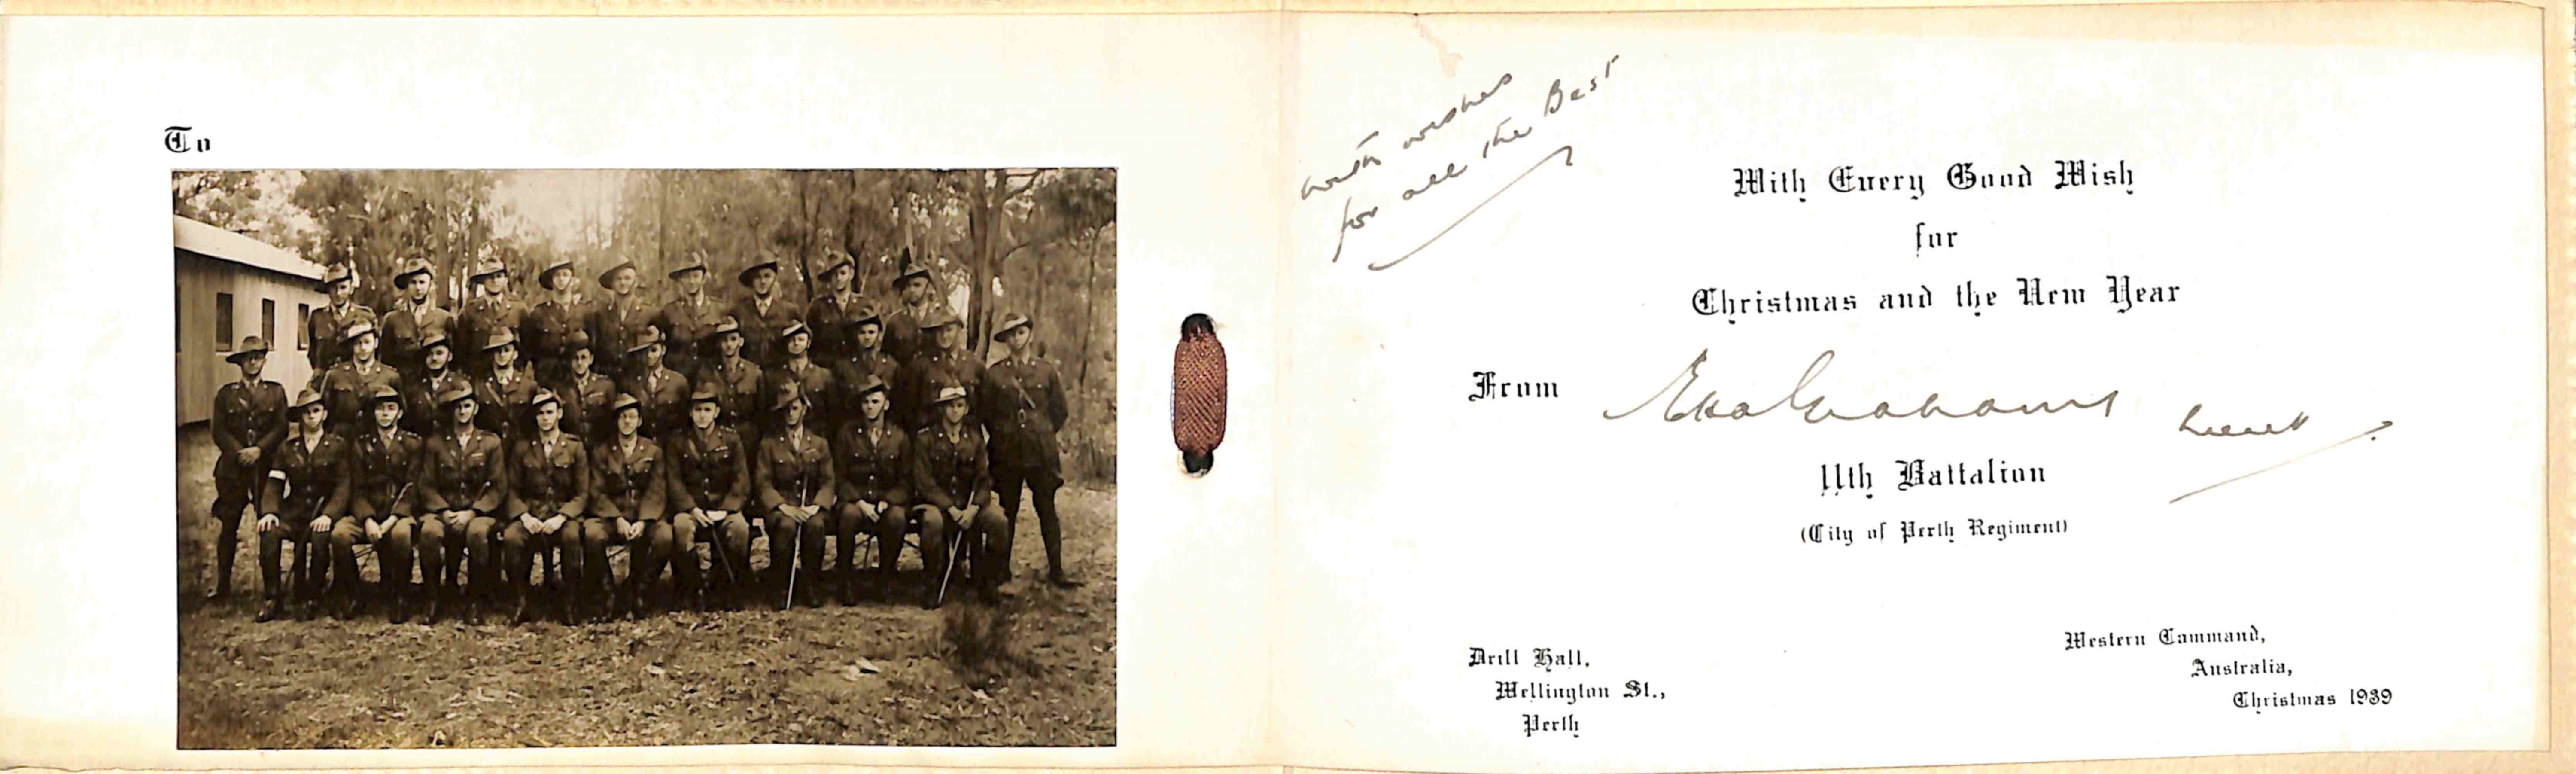 To
with wishes
for all the Best
With Every Good Wish
for
Christmas and the New Year
From
Lieut
11th Battalion
(City of Perth Regiment)
Drill Hall,
Wellington St.,
Perth
Western Command,
Australia,
Christmas 1939